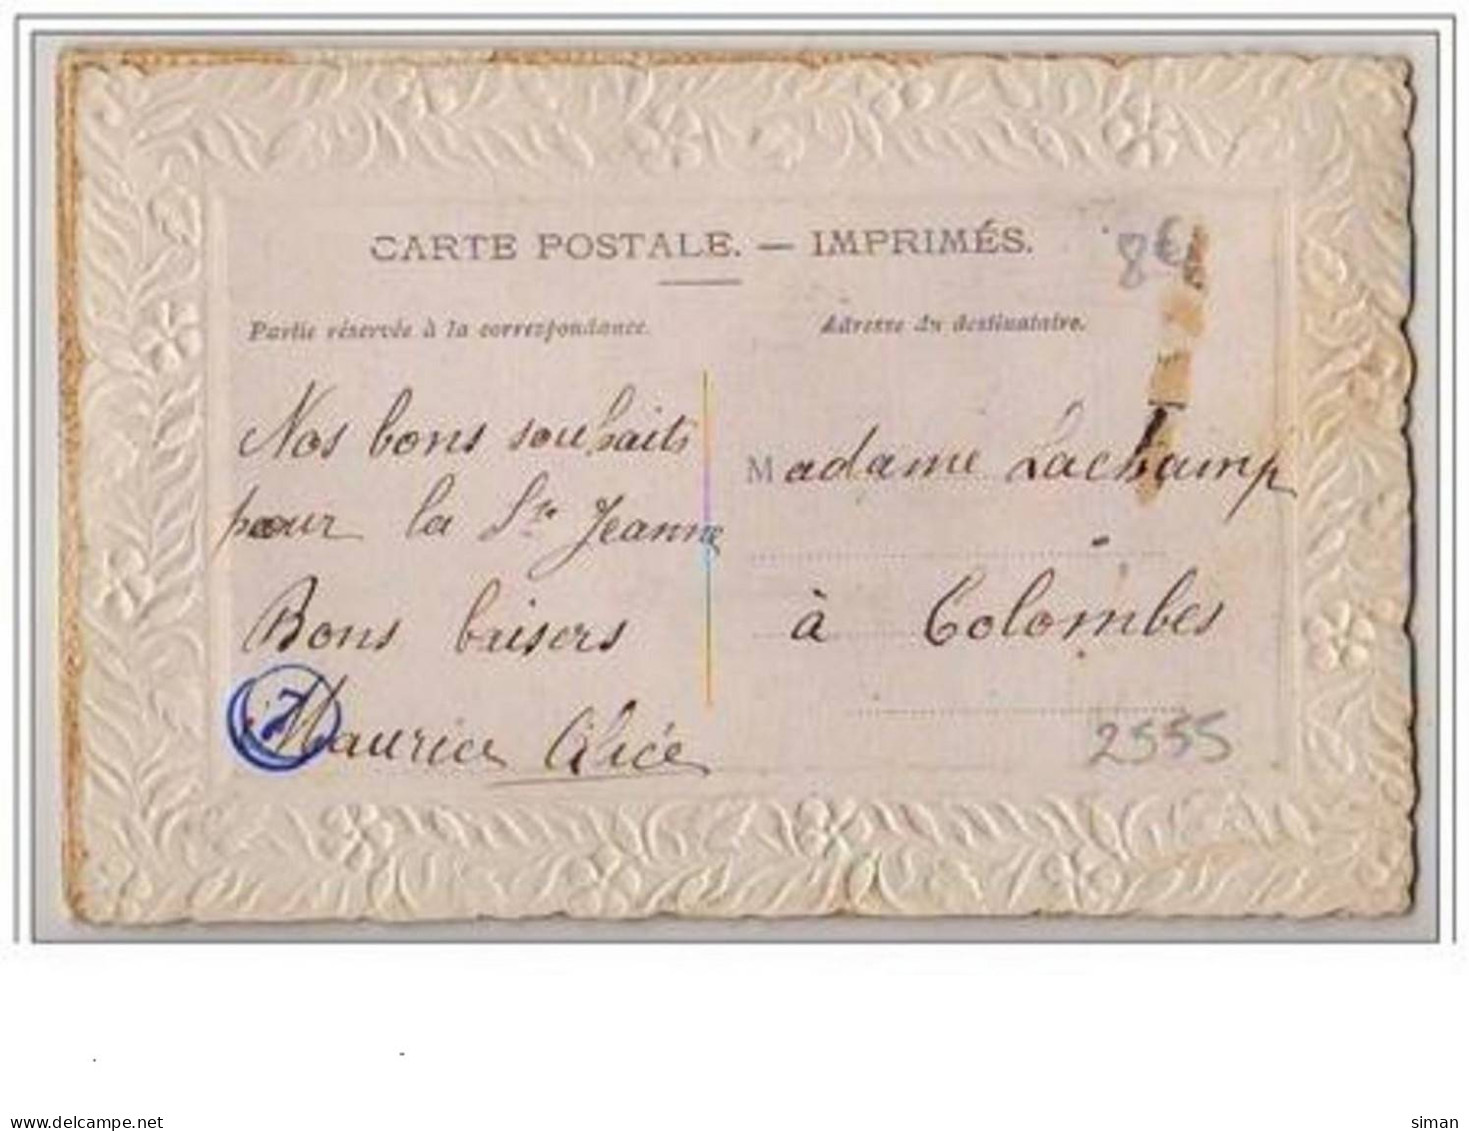 CARTE POSTALE. — IMPRIMÉS.
8€
Partie réservée à la correspondance.
Adresse du destinataire.
Nos bons souhaits
pour la Ste Jeanne
Bons baisers
Maurice Alice
Madame Lachamp
à Colombes
2555
siman
delcampe.net